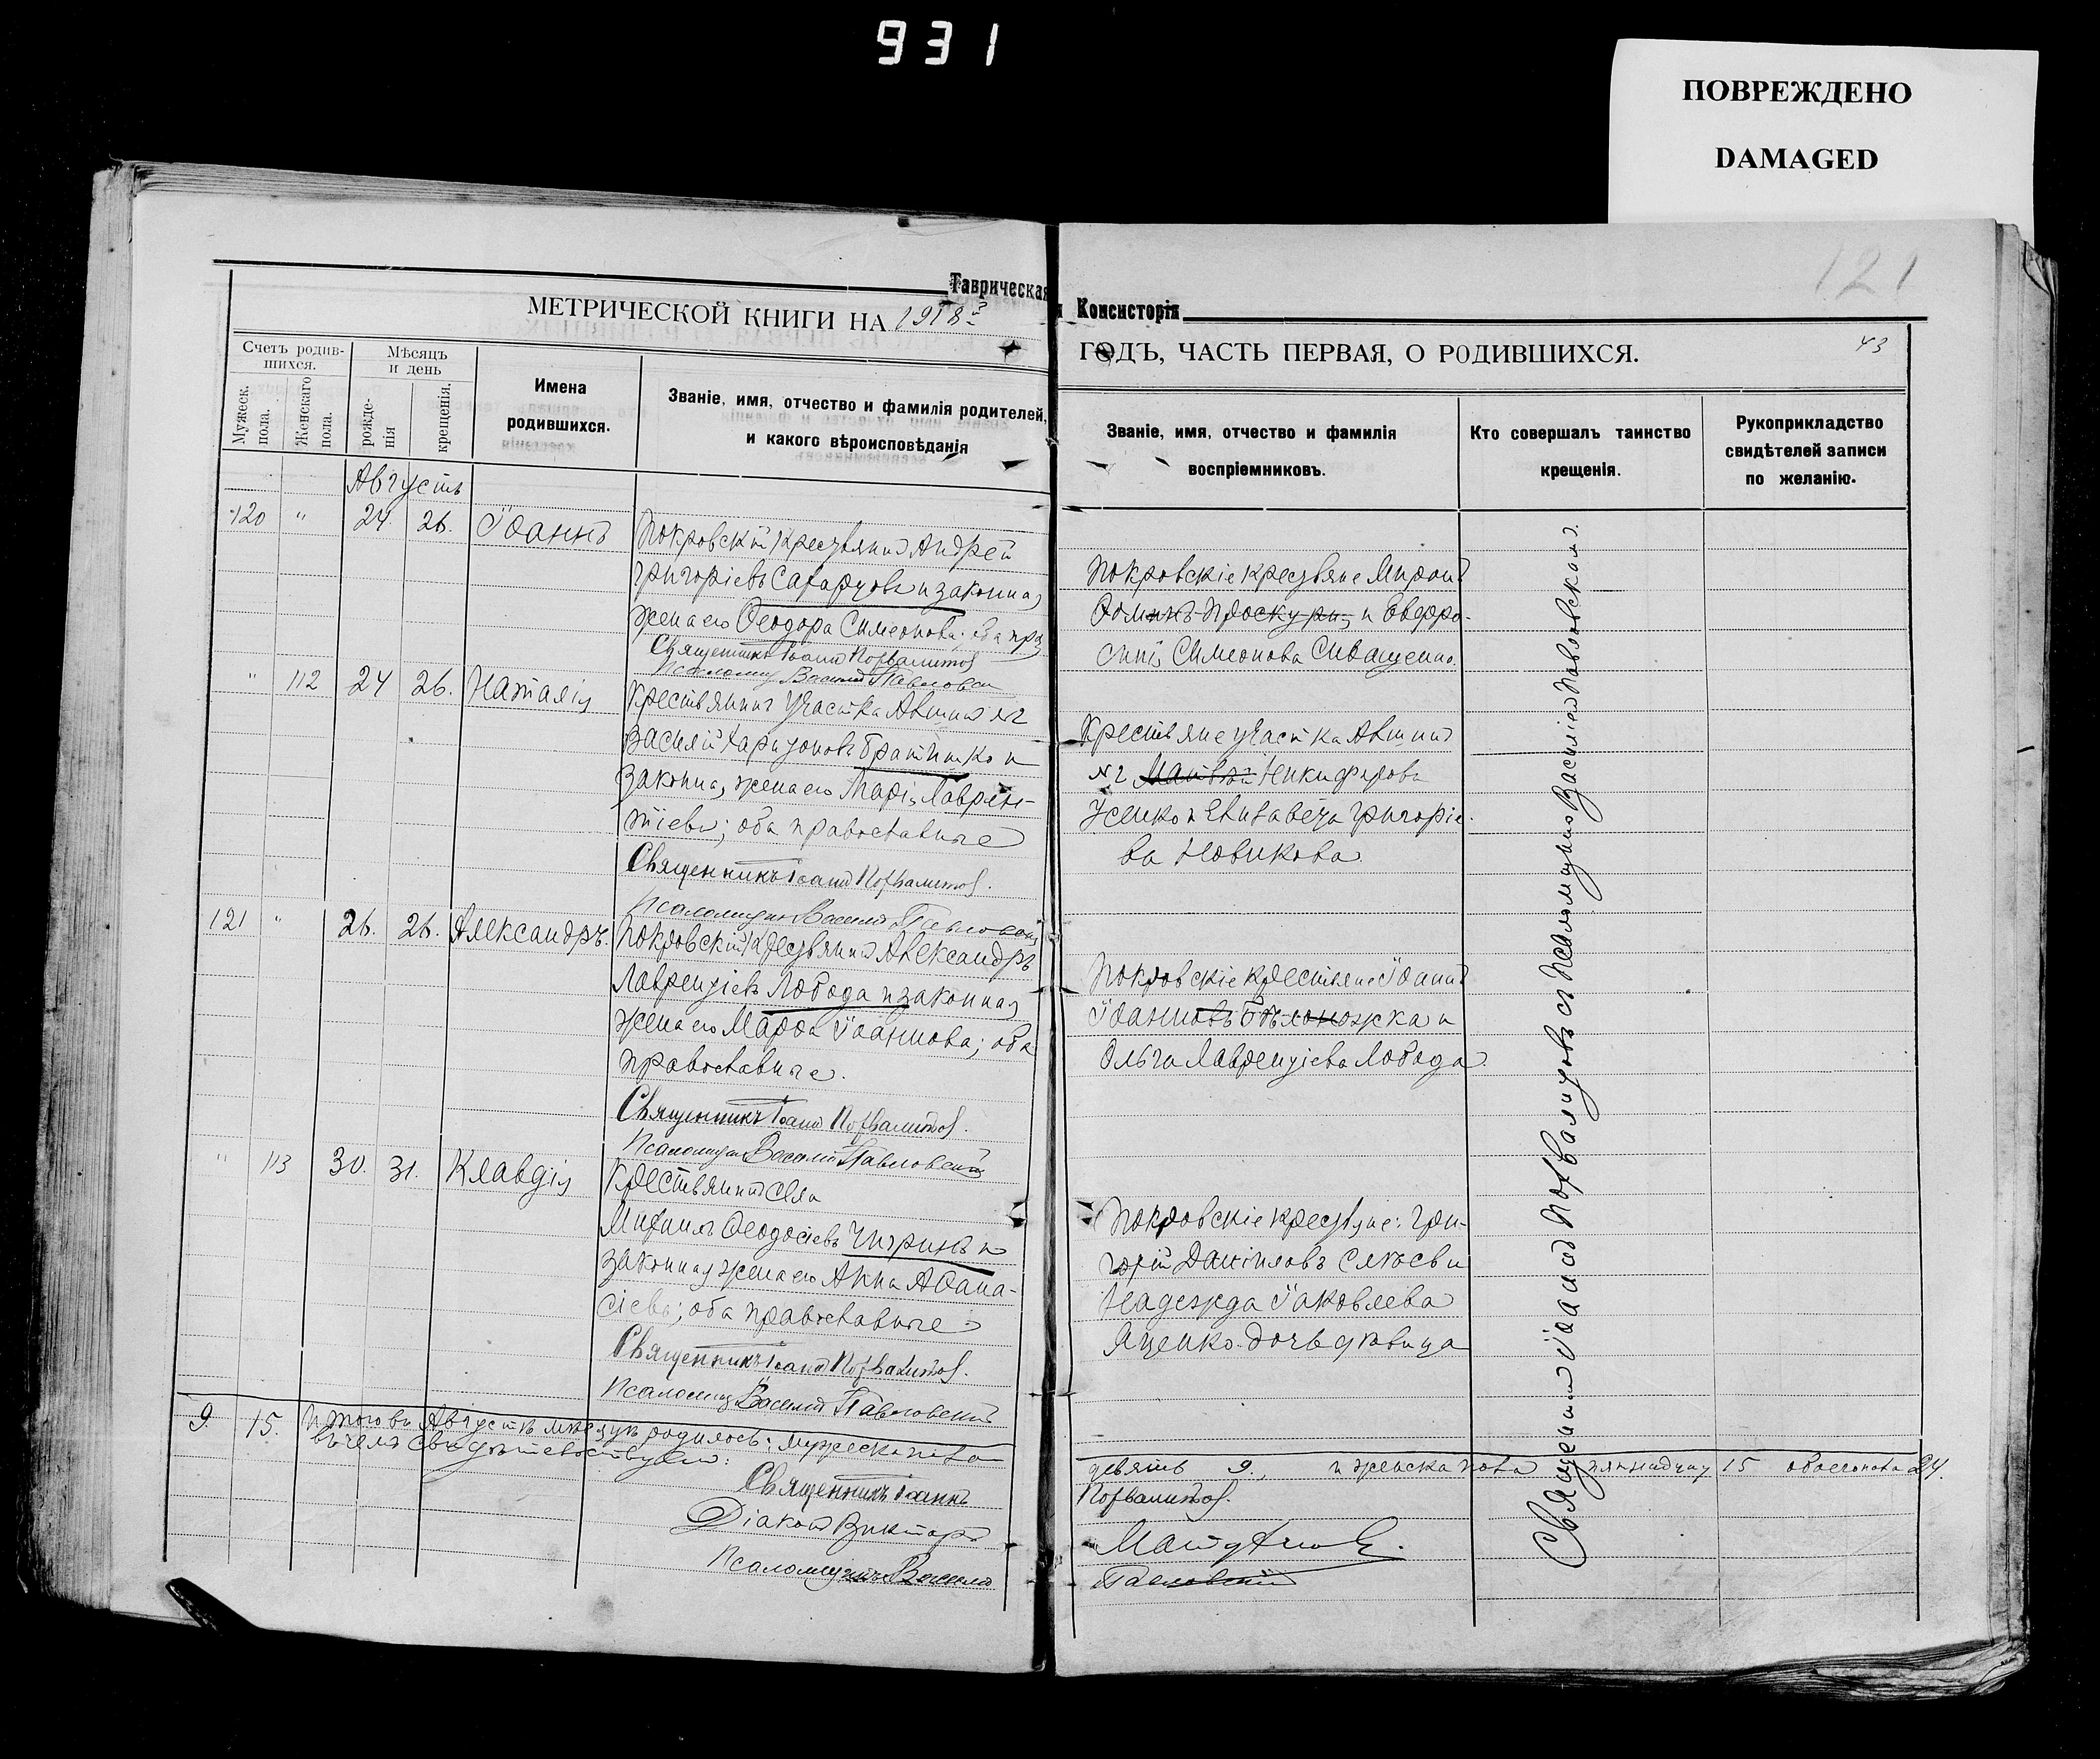 931
ПОВРЕЖДЕНО
DAMAGED
121
Таврическая
Консисторія
МЕТРИЧЕСКОЙ КНИГИ НА 1918
ГОДЪ, ЧАСТЬ ПЕРВАЯ, О РОДИВШИХСЯ.
43
Счетъ родив-
шихся.
Мѣсяцъ
и день
Мужеск.
пола.
Женскаго
пола.
рожде-
нія
крещенія.
Имена
родившихся.
Званіе, имя, отчество и фамилія родителей,
и какого вѣроисповѣданія
Званіе, имя, отчество и фамилія
воспріемниковъ.
Кто совершалъ таинство
крещенія.
Рукоприкладство
свидѣтелей записи
по желанію.
Августъ
120 " 24. 26. Іоаннъ
Покровскій крестьянинъ Андрей
Григоріевъ и законная
жена его Ѳеодора Симеонова; оба пра
Священникъ Іоаннъ Похвалитовъ
Псаломщ Василій Павловск
Покровскіе крестьяне Миронъ
и Евфро-
синія Симеонова Сиващенко.
" 112 24 26. Наталія
Крестьянинъ участка №2
Василій Харитоновъ и
законная жена его Марія Лаврен-
тіева; оба православные
Священникъ Іоаннъ Похвалитовъ.
Псаломщикъ Василій Павловскій
Крестьяне участка
№2 Матвѣй Никифоровъ
и Елизавета Григоріе-
ва Новикова
121 " 26. 26. Александръ.
Покровскій крестьянинъ Александръ
Лаврентіевъ Лобода и законная
жена его Марѳа Іоаннова; оба
православные.
Священникъ Іоаннъ Похвалитовъ.
Псаломщ Василій Павловскій
Покровскіе крестьяне Іоаннъ
Іоанновъ Бѣлоножка и
Ольга Лаврентіева Лобода.
" 113 30. 31. Клавдія
Крестьянинъ села
Михаилъ Ѳеодосіевъ и
законная жена его Анна Аѳана-
сіева; оба православные
Священникъ Іоаннъ Похвалитовъ.
Псаломщ Василій Павловскій
Покровскіе крестьяне: Гри-
горій Даніиловъ и
Надежда Іаковлева
Яценко дочь дѣвица
Священникъ Іоаннъ Похвалитовъ съ псаломщикомъ Василіемъ Павловскимъ.
9. 15. Итого въ Августѣ мѣсяцѣ родилось: мужеска пола
девять 9., и женска пола пятнадцать 15 обоего пола 24.
въ чемъ свидѣтельствуемъ:
Священникъ Іоаннъ
Похвалитовъ.
Діаконъ Викторъ
Псаломщикъ Василій
Павловскій